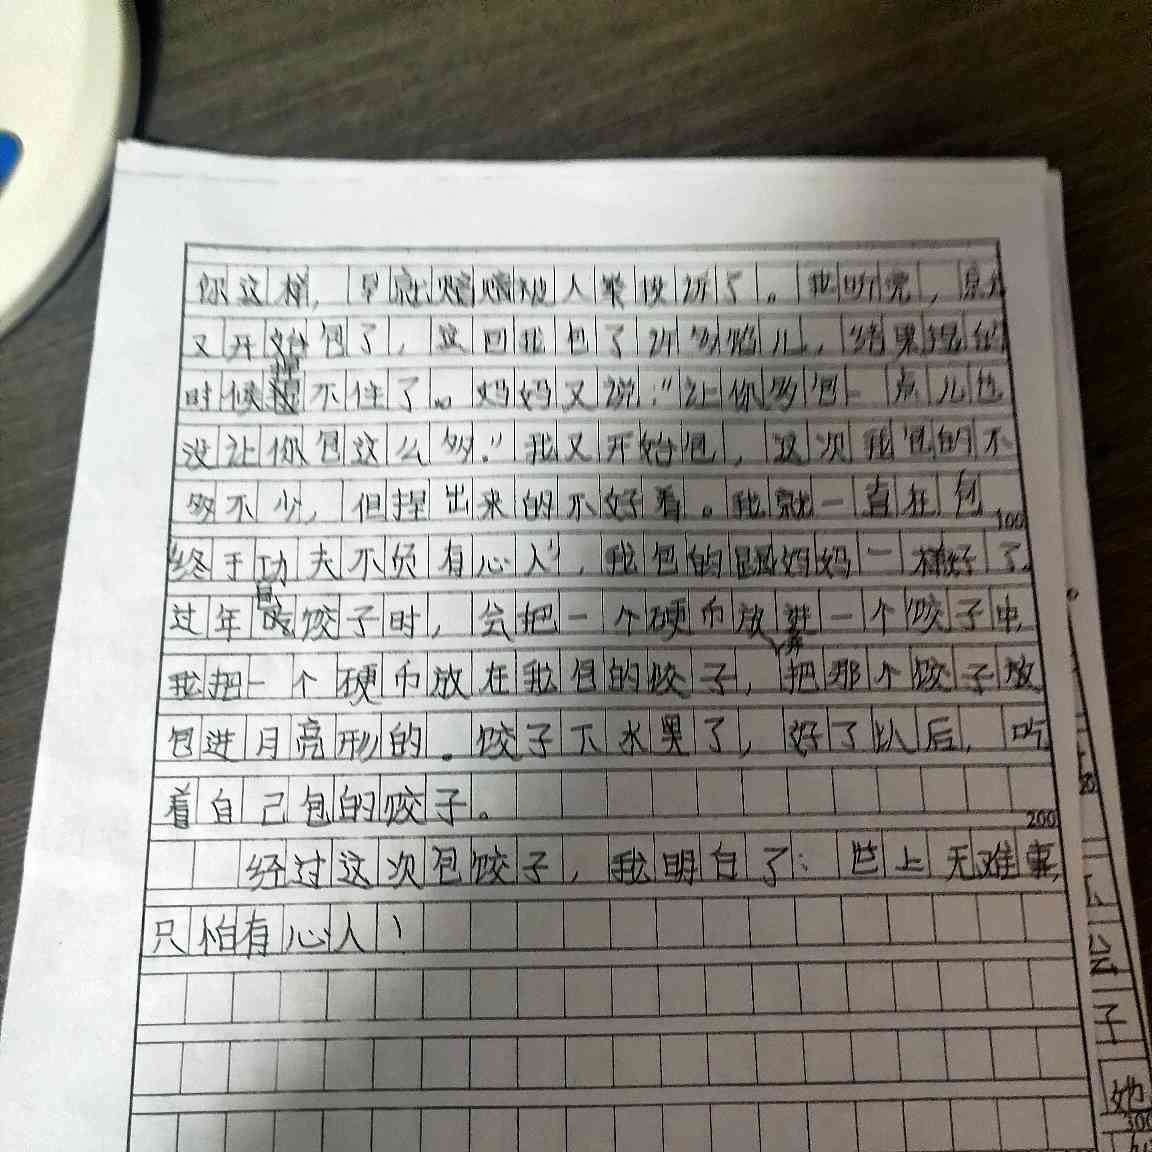 你这样,早就赔赔被人集投诉了。我听完,
又开始包了,这回我包了许多馅儿,结果捏的
时候捏不住了。妈妈又说:"让你多包一点儿也
没让你包这么多."我又开始包,这次我包的不
多不少,但捏出来的不好看。我就一直在包
100
终于功夫不负有心人",我包的跟妈妈一样好了,
过年吃饺子时,会把一个硬币放进一个饺子中,
我把一个硬币放在我包的饺子,把那个饺子放
包进月亮形的.饺子下水煮了,好了以后,吃
着自己包的饺子。
200
经过这次包饺子,我明白了:世上无难事,
只怕有心人!
子
她
300